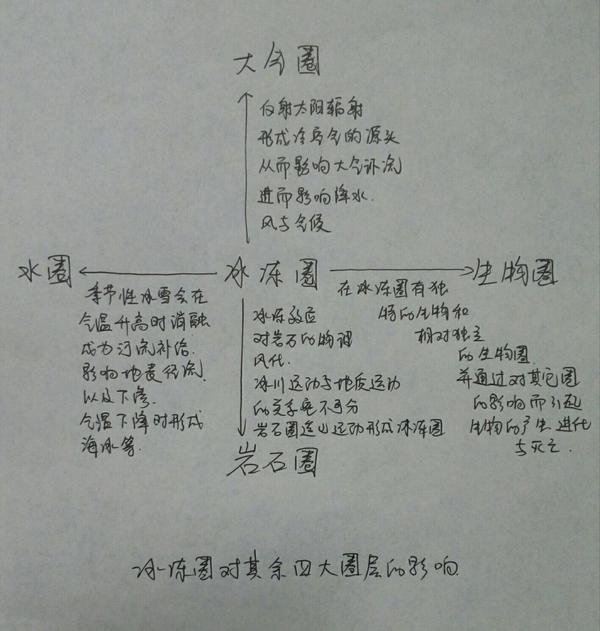 大气圈
反射太阳辐射
形成冷空气的源头
从而影响大气环流
进而影响降水
风与气候
水圈
冰冻圈
生物圈
季节性冰雪会在
气温升高时消融
成为河流补给.
影响地表径流.
以及下渗.
气温下降时形成
海冰等.
冰冻效应
对岩石的物理
风化.
冰川运动与地质运动
的关系密不可分
岩石圈造山运动形成冰冻圈
在冰冻圈有独
特的生物和
相对独立
的生物圈.
并通过对其它圈
的影响而引起
生物的产生进化
与灭亡.
岩石圈
冰冻圈对其余四大圈层的影响.